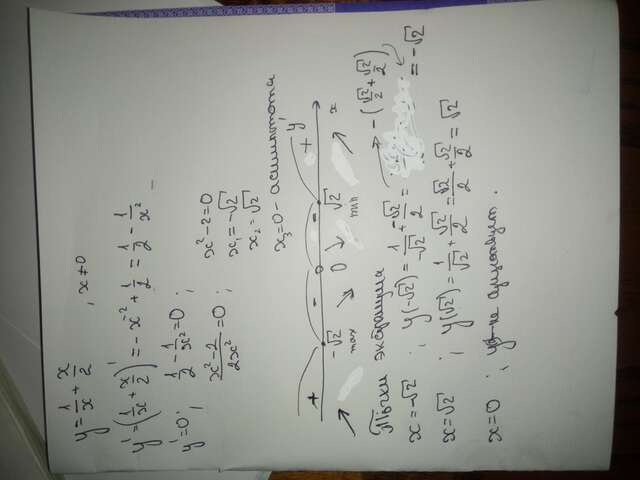 y = 1/x + x/2 , x ≠ 0
y' = (1/x + x/2)' = -x⁻² + 1/2 = 1/2 - 1/x²
y' = 0 ; 1/2 - 1/x² = 0 ; x² - 2 = 0
(x² - 2)/(2x²) = 0 ; x₁ = -√2
x₂ = √2
x₃ = 0 - асимптота
+ - - + y'
-√2 0 √2 x
max min
Точки экстремума
x = -√2 ; y(-√2) = 1/(-√2) + (-√2)/2 = -(√2/2 + √2/2) = -√2
x = √2 ; y(√2) = 1/√2 + √2/2 = √2/2 + √2/2 = √2
x = 0 ; не существует.